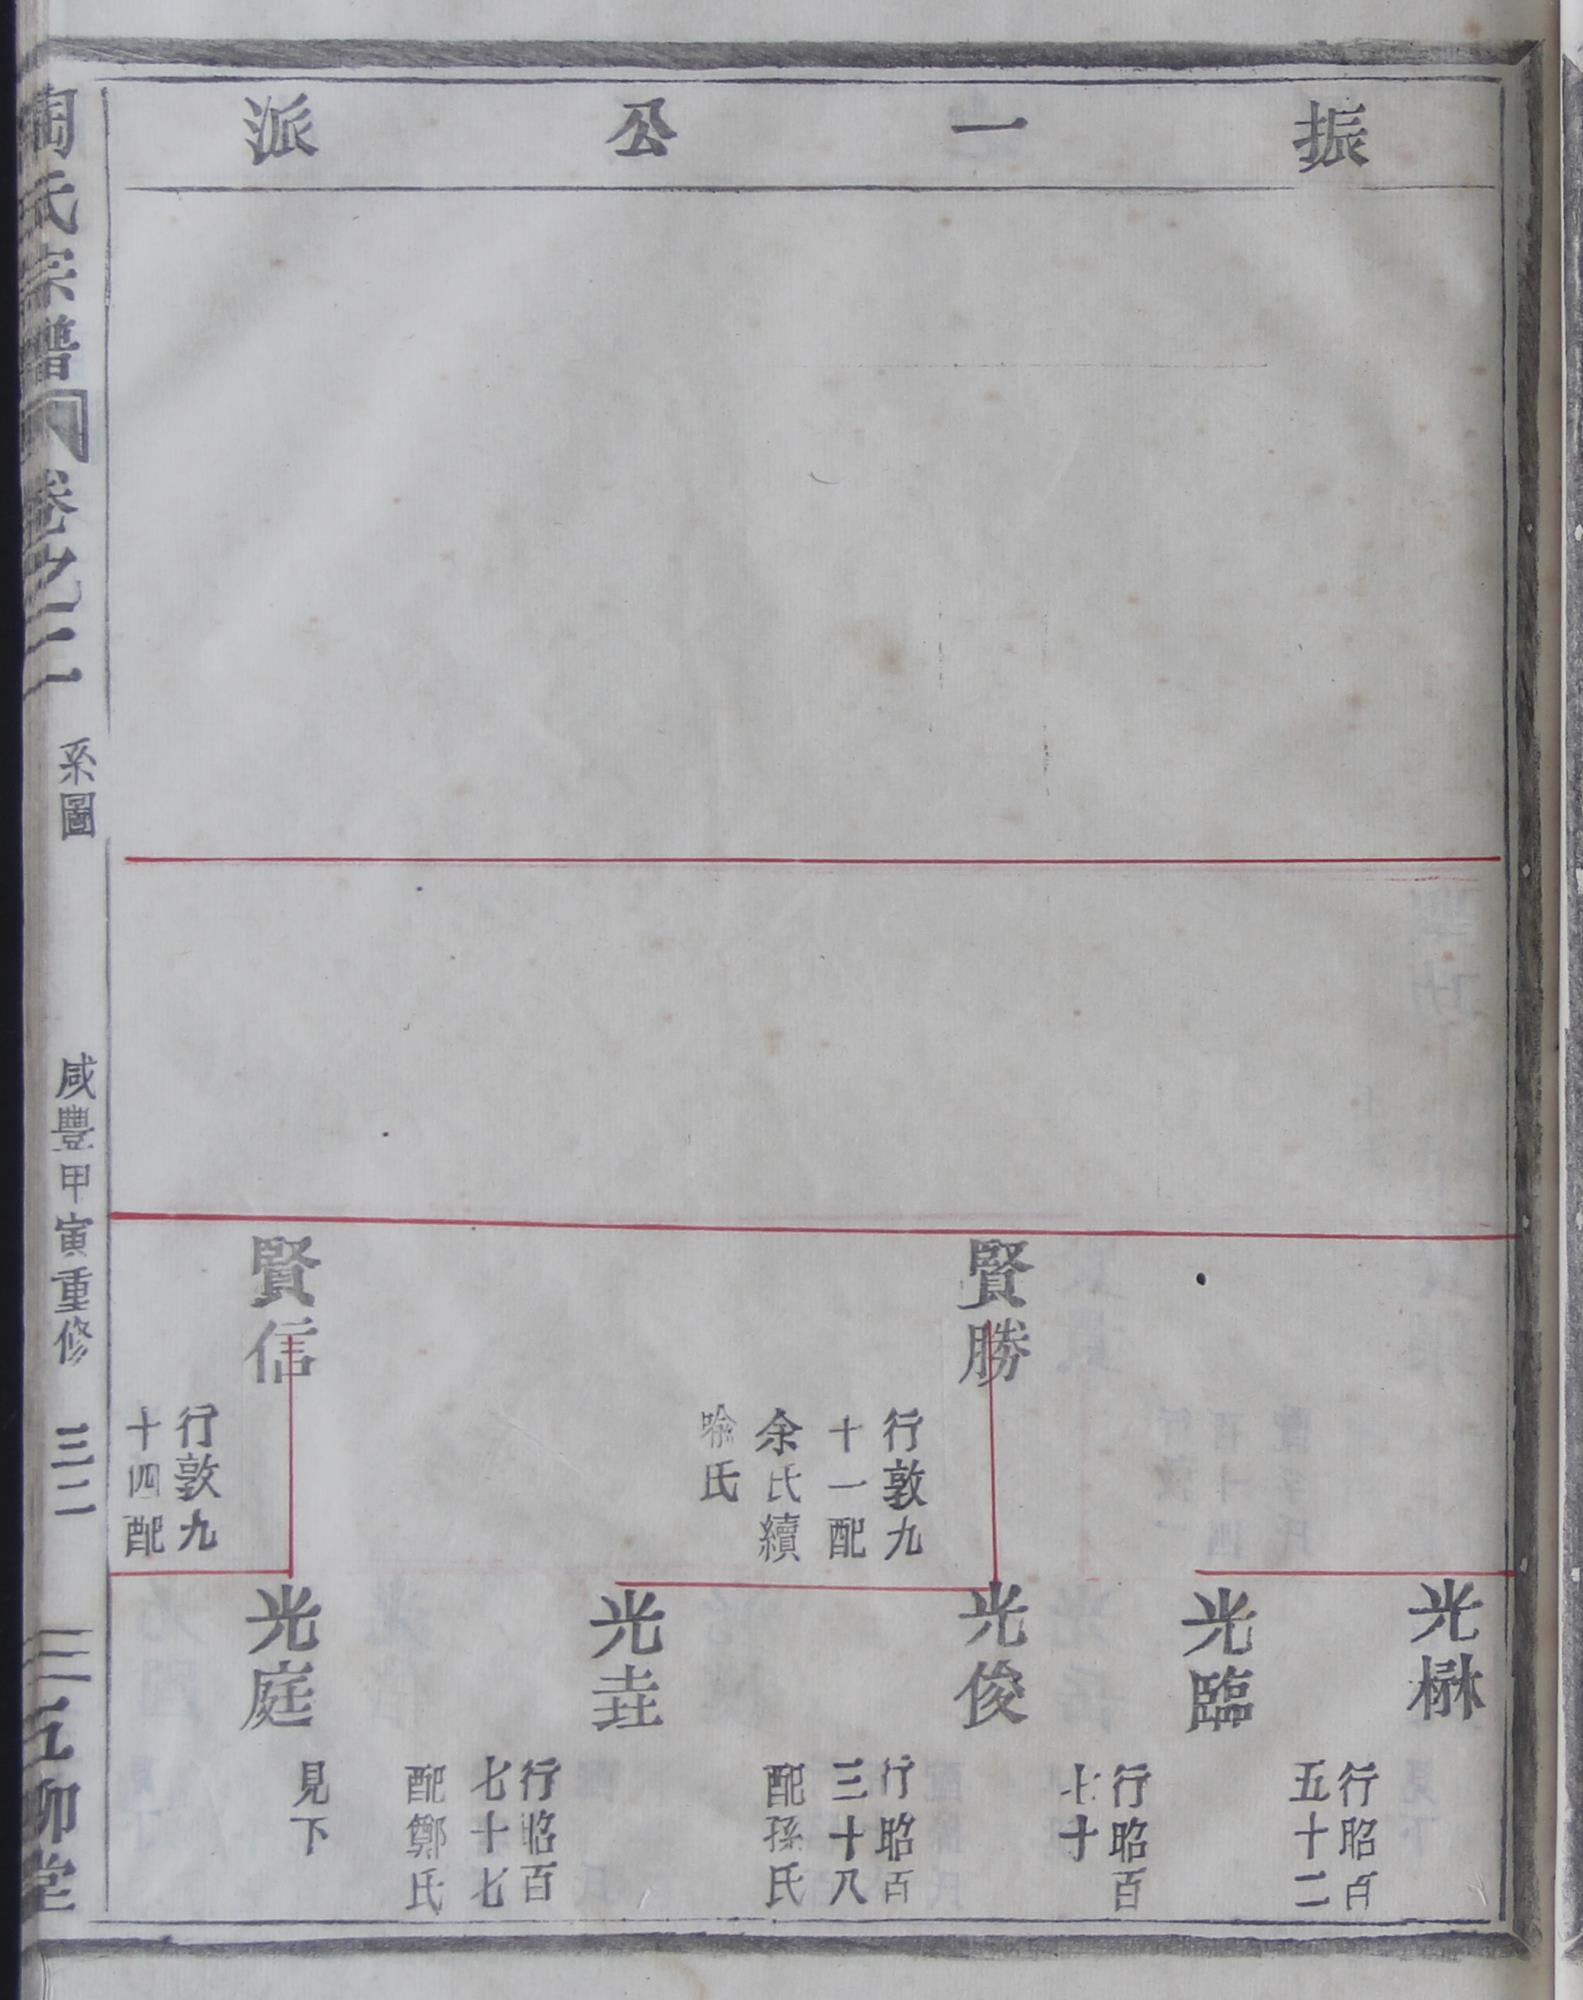 振一公派
賢勝
行敦九
十一配
余氏續
喻氏
賢信
行敦九
十四配
光楙
行昭百
五十二
光臨
行昭百
七十
光俊
行昭百
三十八
配孫氏
光垚
行昭百
七十七
配鄭氏
光庭
見下
陶氏宗譜
卷之二
系圖
咸豐甲寅重修
三二
五柳堂